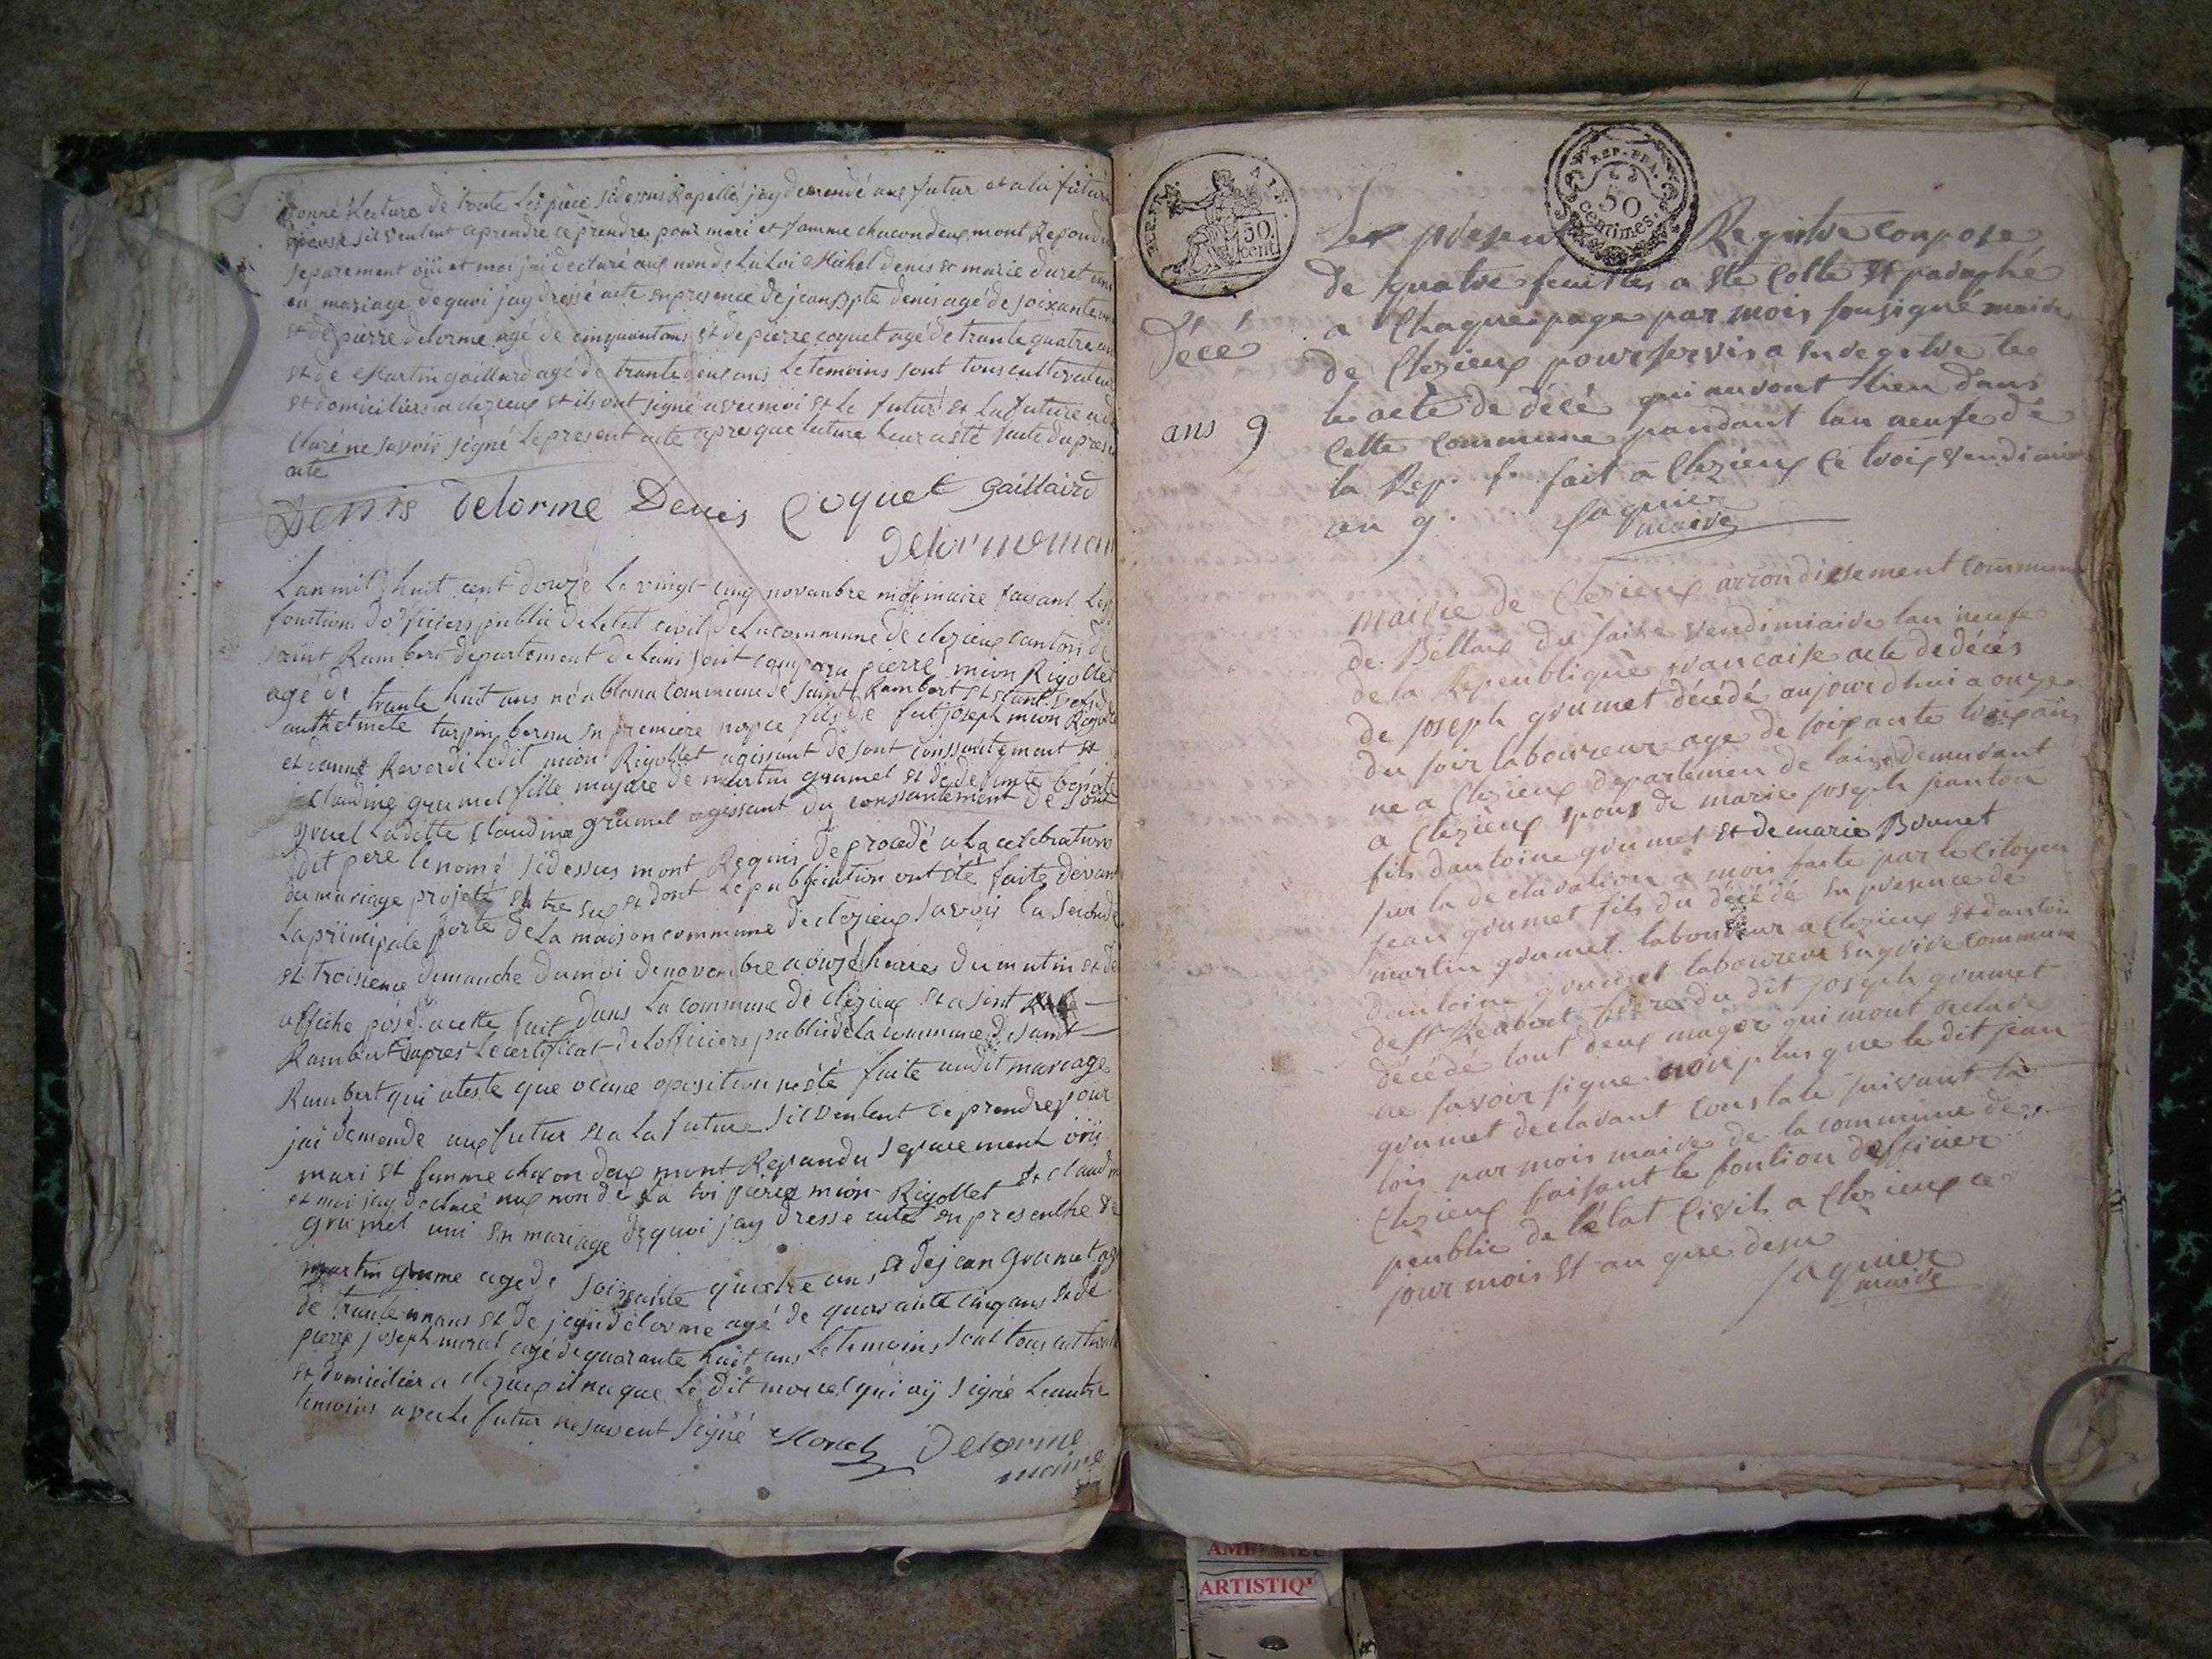 donné Lecture de toute Les piece sidessus Rapellé jay demendé aux futur et a la future
epouse sil veulent ce prendre pour mari et famme chacon deux mont Repondu
separement oüi et moi jai declaré aux non de La Loi Michel denis et marie duret uni
en mariage de quoi jay dressé acte en presence de jean Bpte denis agé de soixante
et de pierre delorme agé de cinquant ans et de pierre coquet agé de trante quatre
et de Martin gaillard agé de trante deux ans Le temoins sont tous cultivateur
et domicilier a clezieux et ils ont signé avec moi et Le futur et La future a de
claré ne savoir signé Le present acte apres que lecture Leur a eté faite du present
acte
Denis Delorme Denis Coquet Gaillaird
Delorme
Lan mil huit cent douze Le vingt cinq novanbre moi maire faisant Les
fonction dofficiers public de Letat civil de La commune de clezieux canton de
saint Rambert departement de Lain sont comparu pierre mion Rigollet
agé de trante huit ans né a blana commune de saint Rambert
anthelmete turpin en premiere nopce fils de fut joseph mion Rigollet
et jeanne Reverdi Ledit mion Rigollet agissant de sont conssantement et
Claudine grumel fille majore de martin grumel et de defunte benoite
gruel Ladette Claudine grumel agissant du conssantement de sont
dit pere le nomé sidessus mont Requis de procedé a La celebration
du mariage projeté entre eux et dont Le publication ont eté faite devant
La principale porte de La maison commune de clezieux savoir La seconde
et troisieme dimanche du moi de novenbre a onze heures du matin et de
affiche posé a cette fait dans La commune de clezieux et a sint
Rambert dapres Le certificat de Lofficiers public de La commune de saint
Rambert qui ateste que ocune oposition na eté faite audit mariage
jai demende aux futur et a La future sil veulent ce prendre pour
mari et famme chacon deux mont Repandu separement oüi
et moi jay declaré aux non de La loi pierre mion Rigollet et claudine
grumel uni en mariage de quoi jay dresse acte en presenthe de
martin grume age de soixsante quatre ans et de jean grumet agé
de trante un ans et de jean delorme agé de quarante cinq ans et de
pierre joseph morel agé de quarante huit ans Le temoins sont tous
et domicilier a clezieux il na que Le dit morel qui aÿ signé Le autre
temoins avec Le futur ne savent signé Morel Delorme
maire
REP. FRA. 50 cent.
REP. FRA. 50 centimes.
Le present Registre conpose
de quatre feuilles a ete cotte et paraphé
Décé a Chaque page par mois sousigné maire
de Clezieux pour servir a enregistre le
le acte de décé qui auront lieu dans
ans 9 Cette Commune pandant lan neufe de
la Rep. f. fait a Clezieux ce trois vendimiaire
an 9. Jaquier
maire
Mairie de Clezieux arrondissement communal
de Bellaix du saise vendimiaire lan neufe
de la Repeublique francaise acte de décés
de joseph grumet décédé aujourdhui a onze
du soir laboureur age de soixante trois ans
ne a Clezieux departemen de lain demurant
a Clezieux epoux de marie joseph jeanton
fils dantoine grumet et de marie Bounet
sur la declaration a mois faite par le Citoyen
jean grumet fils du décédé en presence de
martin grumet laboureur a Clezieux et dantoin
dantoine grumet laboureur commune
de st Renbert frere du dit joseph grumet
décédé tout deux mager qui mont declare
ne savoir signe non plus que le dit jean
grumet declarant constate suivant la
lois par mois maire de la commune de
Clezieux faisant le fontion dofficier
peublic de letat civil a Clezieux ce
jour mois et an que desu
Jaquier
maire
ARTISTIQ